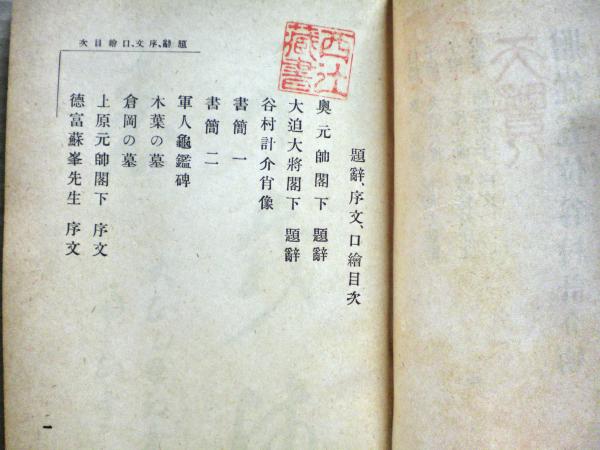 題辭、序文、口繪目次
奥元帥閣下 題辭
大迫大將閣下 題辭
谷村計介肖像
書簡一
書簡二
軍人龜鑑碑
木葉の墓
倉岡の墓
上原元帥閣下 序文
德富蘇峯先生 序文
題辭、序文、口繪目次
一